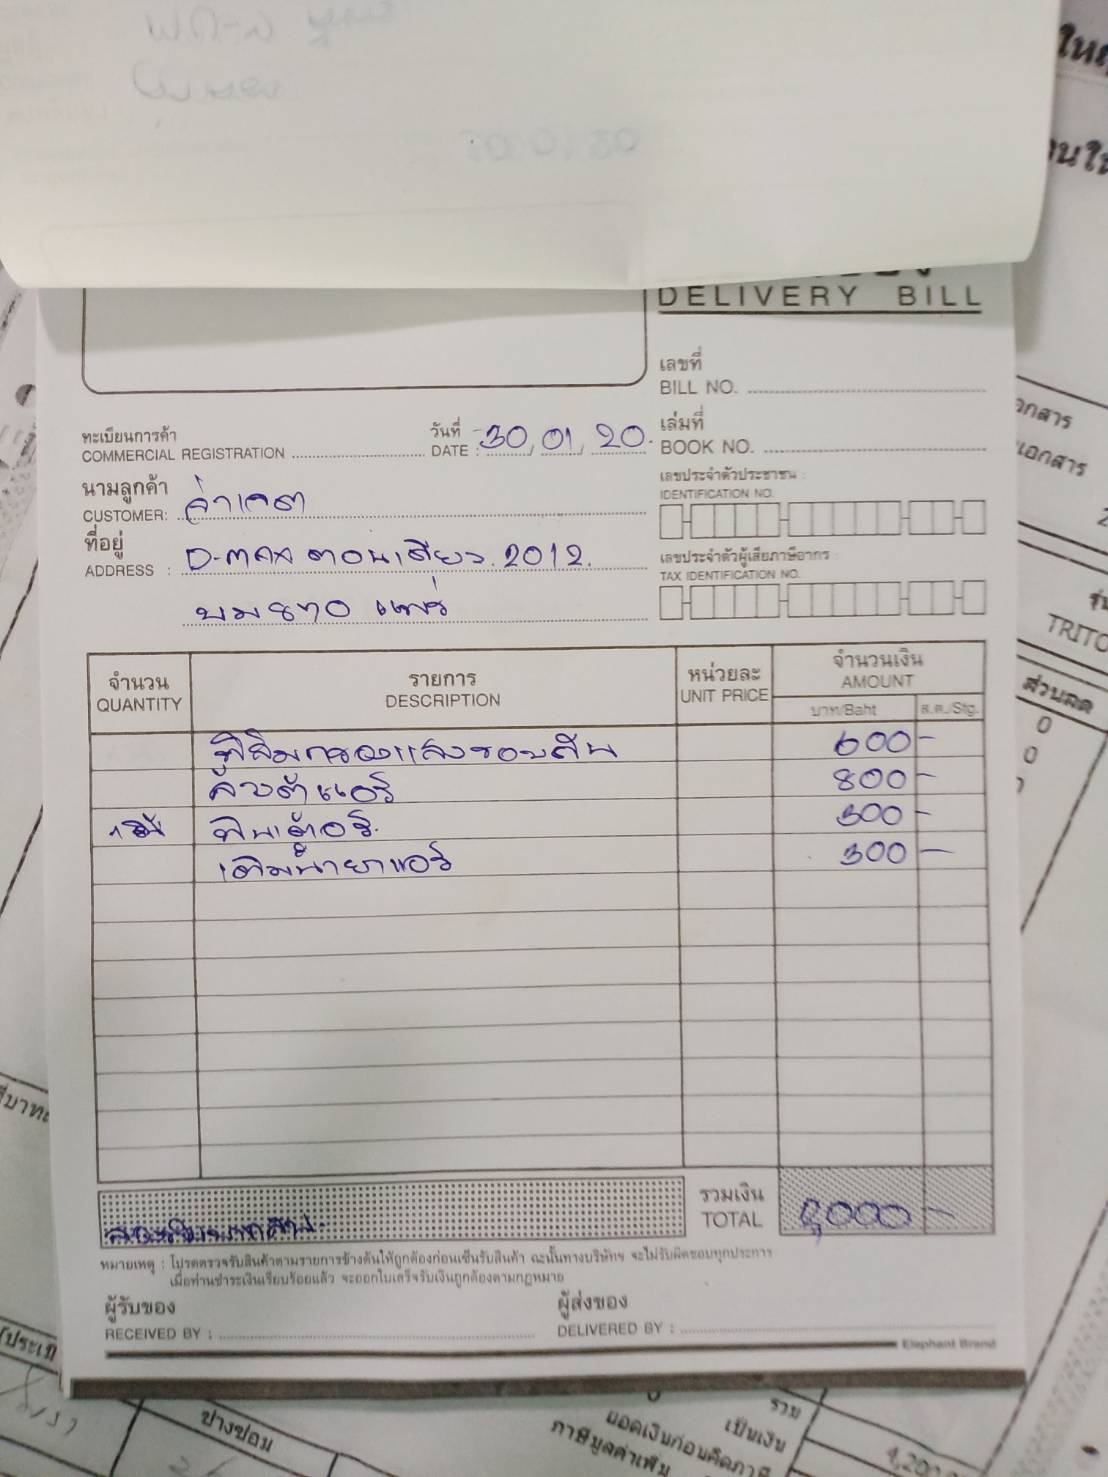 DELIVERY BILL
เลขที่
BILL NO.
ทะเบียนการค้า
COMMERCIAL REGISTRATION
วันที่
DATE : 30, 01, 20.
เล่มที่
BOOK NO.
นามลูกค้า
CUSTOMER:
เลขประจำตัวประชาชน :
IDENTIFICATION NO.
ที่อยู่
ADDRESS : D-max ตอนเดียว. 2012.
แพร่
เลขประจำตัวผู้เสียภาษีอากร :
TAX IDENTIFICATION NO.
จำนวน
QUANTITY
รายการ
DESCRIPTION
หน่วยละ
UNIT PRICE
จำนวนเงิน
AMOUNT
บาท/Baht
ส.ต./Stg.
ฟิล์มกรองแสงรอบคัน 600 -
ล้างตู้แอร์ 800 -
ฟิลเตอร์. 300 -
เติมน้ำยาแอร์ 300 -
รวมเงิน
TOTAL
2,000 -
หมายเหตุ : โปรดตรวจรับสินค้าตามรายการข้างต้นให้ถูกต้องก่อนเซ็นรับสินค้า ฉะนั้นทางบริษัทฯ จะไม่รับผิดชอบทุกประการ
เมื่อท่านชำระเงินเรียบร้อยแล้ว จะออกใบเสร็จรับเงินถูกต้องตามกฎหมาย
ผู้รับของ
RECEIVED BY :
ผู้ส่งของ
DELIVERED BY :
Elephant Brand
เอกสาร
TRITO
ส่วนลด
0
0
ปางซ่อม
รวม
เป็นเงิน
ยอดเงินก่อนคิดภาษี
ภาษีมูลค่าเพิ่ม
4,200